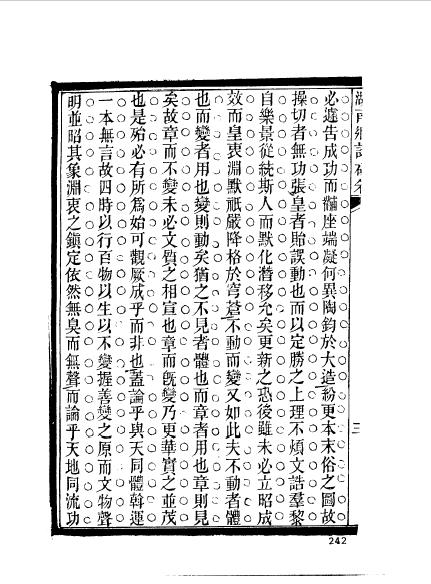 湖南鄉試硃卷
必遽告成功而黼座端凝何異陶鈞於大造紛更本末俗之圖故
操切者無功張皇者貽誤動也而以定勝之上理不煩文誥羣黎
自樂景從統斯人而默化潛移允矣更新之恐後雖未必立昭成
效而皇衷淵默祇嚴降格於穹蒼不動而變又如此夫不動者體
也而變者用也變則動矣猶之不見者體也而章者用也章則見
矣故章而不變未必文質之相宣也章而旣變乃更華實之並茂
也是殆必有所為始可觀厥成乎而非也蓋論乎與天同體斡運
一本無言故四時以行百物以生以不變握善變之原而文物聲
明並昭其象淵衷之鎮定依然無臭而無聲而論乎天地同流功
三
242